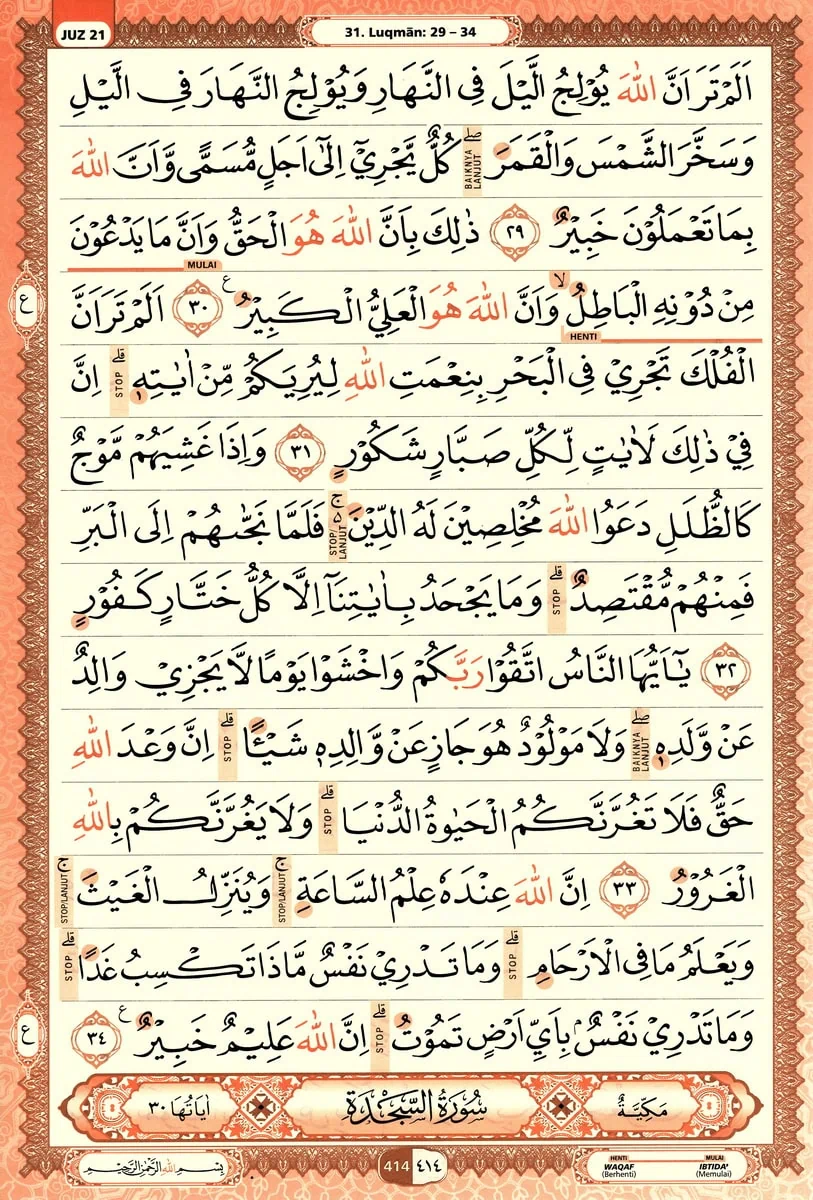 JUZ 21
31. Luqmān: 29 – 34
اَلَمْ تَرَ اَنَّ اللّٰهَ يُوْلِجُ الَّيْلَ فِى النَّهَارِ وَيُوْلِجُ النَّهَارَ فِى الَّيْلِ
وَسَخَّرَ الشَّمْسَ وَالْقَمَرَ ۖ BAIKNYA LANJUT كُلٌّ يَّجْرِيْٓ اِلٰٓى اَجَلٍ مُّسَمًّى وَّاَنَّ اللّٰهَ
بِمَا تَعْمَلُوْنَ خَبِيْرٌ ٢٩ ذٰلِكَ بِاَنَّ اللّٰهَ هُوَ الْحَقُّ وَاَنَّ مَا يَدْعُوْنَ
MULAI
مِنْ دُوْنِهِ الْبَاطِلُ ۙ وَاَنَّ اللّٰهَ هُوَ الْعَلِيُّ الْكَبِيْرُ ࣖ ٣٠ اَلَمْ تَرَ اَنَّ
HENTI
الْفُلْكَ تَجْرِيْ فِى الْبَحْرِ بِنِعْمَتِ اللّٰهِ لِيُرِيَكُمْ مِّنْ اٰيٰتِهٖ ۗ STOP اِنَّ
فِيْ ذٰلِكَ لَاٰيٰتٍ لِّكُلِّ صَبَّارٍ شَكُوْرٍ ٣١ وَاِذَا غَشِيَهُمْ مَّوْجٌ
كَالظُّلَلِ دَعَوُا اللّٰهَ مُخْلِصِيْنَ لَهُ الدِّيْنَ ۚ STOP/LANJUT فَلَمَّا نَجّٰىهُمْ اِلَى الْبَرِّ
فَمِنْهُمْ مُّقْتَصِدٌ ۗ STOP وَمَا يَجْحَدُ بِاٰيٰتِنَآ اِلَّا كُلُّ خَتَّارٍ كَفُوْرٍ
٣٢ يٰٓاَيُّهَا النَّاسُ اتَّقُوْا رَبَّكُمْ وَاخْشَوْا يَوْمًا لَّا يَجْزِيْ وَالِدٌ
عَنْ وَّلَدِهٖ ۖ BAIKNYA LANJUT وَلَا مَوْلُوْدٌ هُوَ جَازٍ عَنْ وَّالِدِهٖ شَيْـًٔا ۗ STOP اِنَّ وَعْدَ اللّٰهِ
حَقٌّ فَلَا تَغُرَّنَّكُمُ الْحَيٰوةُ الدُّنْيَا ۗ STOP وَلَا يَغُرَّنَّكُمْ بِاللّٰهِ
الْغَرُوْرُ ٣٣ اِنَّ اللّٰهَ عِنْدَهٗ عِلْمُ السَّاعَةِ ۚ STOP/LANJUT وَيُنَزِّلُ الْغَيْثَ ۚ STOP/LANJUT
وَيَعْلَمُ مَا فِى الْاَرْحَامِ ۗ STOP وَمَا تَدْرِيْ نَفْسٌ مَّاذَا تَكْسِبُ غَدًا ۗ STOP
وَمَا تَدْرِيْ نَفْسٌۢ بِاَيِّ اَرْضٍ تَمُوْتُ ۗ STOP اِنَّ اللّٰهَ عَلِيْمٌ خَبِيْرٌ ࣖ ٣٤
ع
ع
مَكِّيَّةٌ سُوْرَةُ السَّجْدَةِ اٰيَاتُهَا ٣٠
بِسْمِ اللّٰهِ الرَّحْمٰنِ الرَّحِيْمِ
414 ٤١٤
HENTI WAQAF (Berhenti)
MULAI IBTIDA' (Memulai)